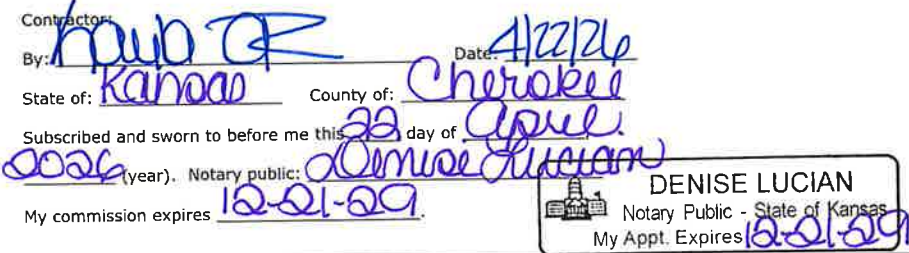 Contractor:
By: Date: 4/22/26
State of: Kansas County of: Cherokee
Subscribed and sworn to before me this 22 day of April.
2026 (year). Notary public: Denise Lucian
My commission expires 12-21-29.
DENISE LUCIAN
Notary Public - State of Kansas
My Appt. Expires 12-21-29